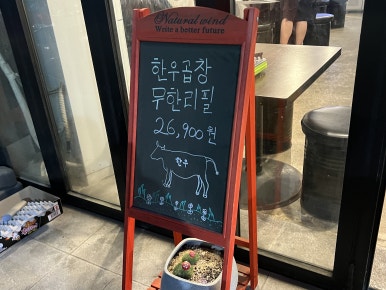 Natural wind
Write a better future
한우곱창
무한리필
26,900원
한우